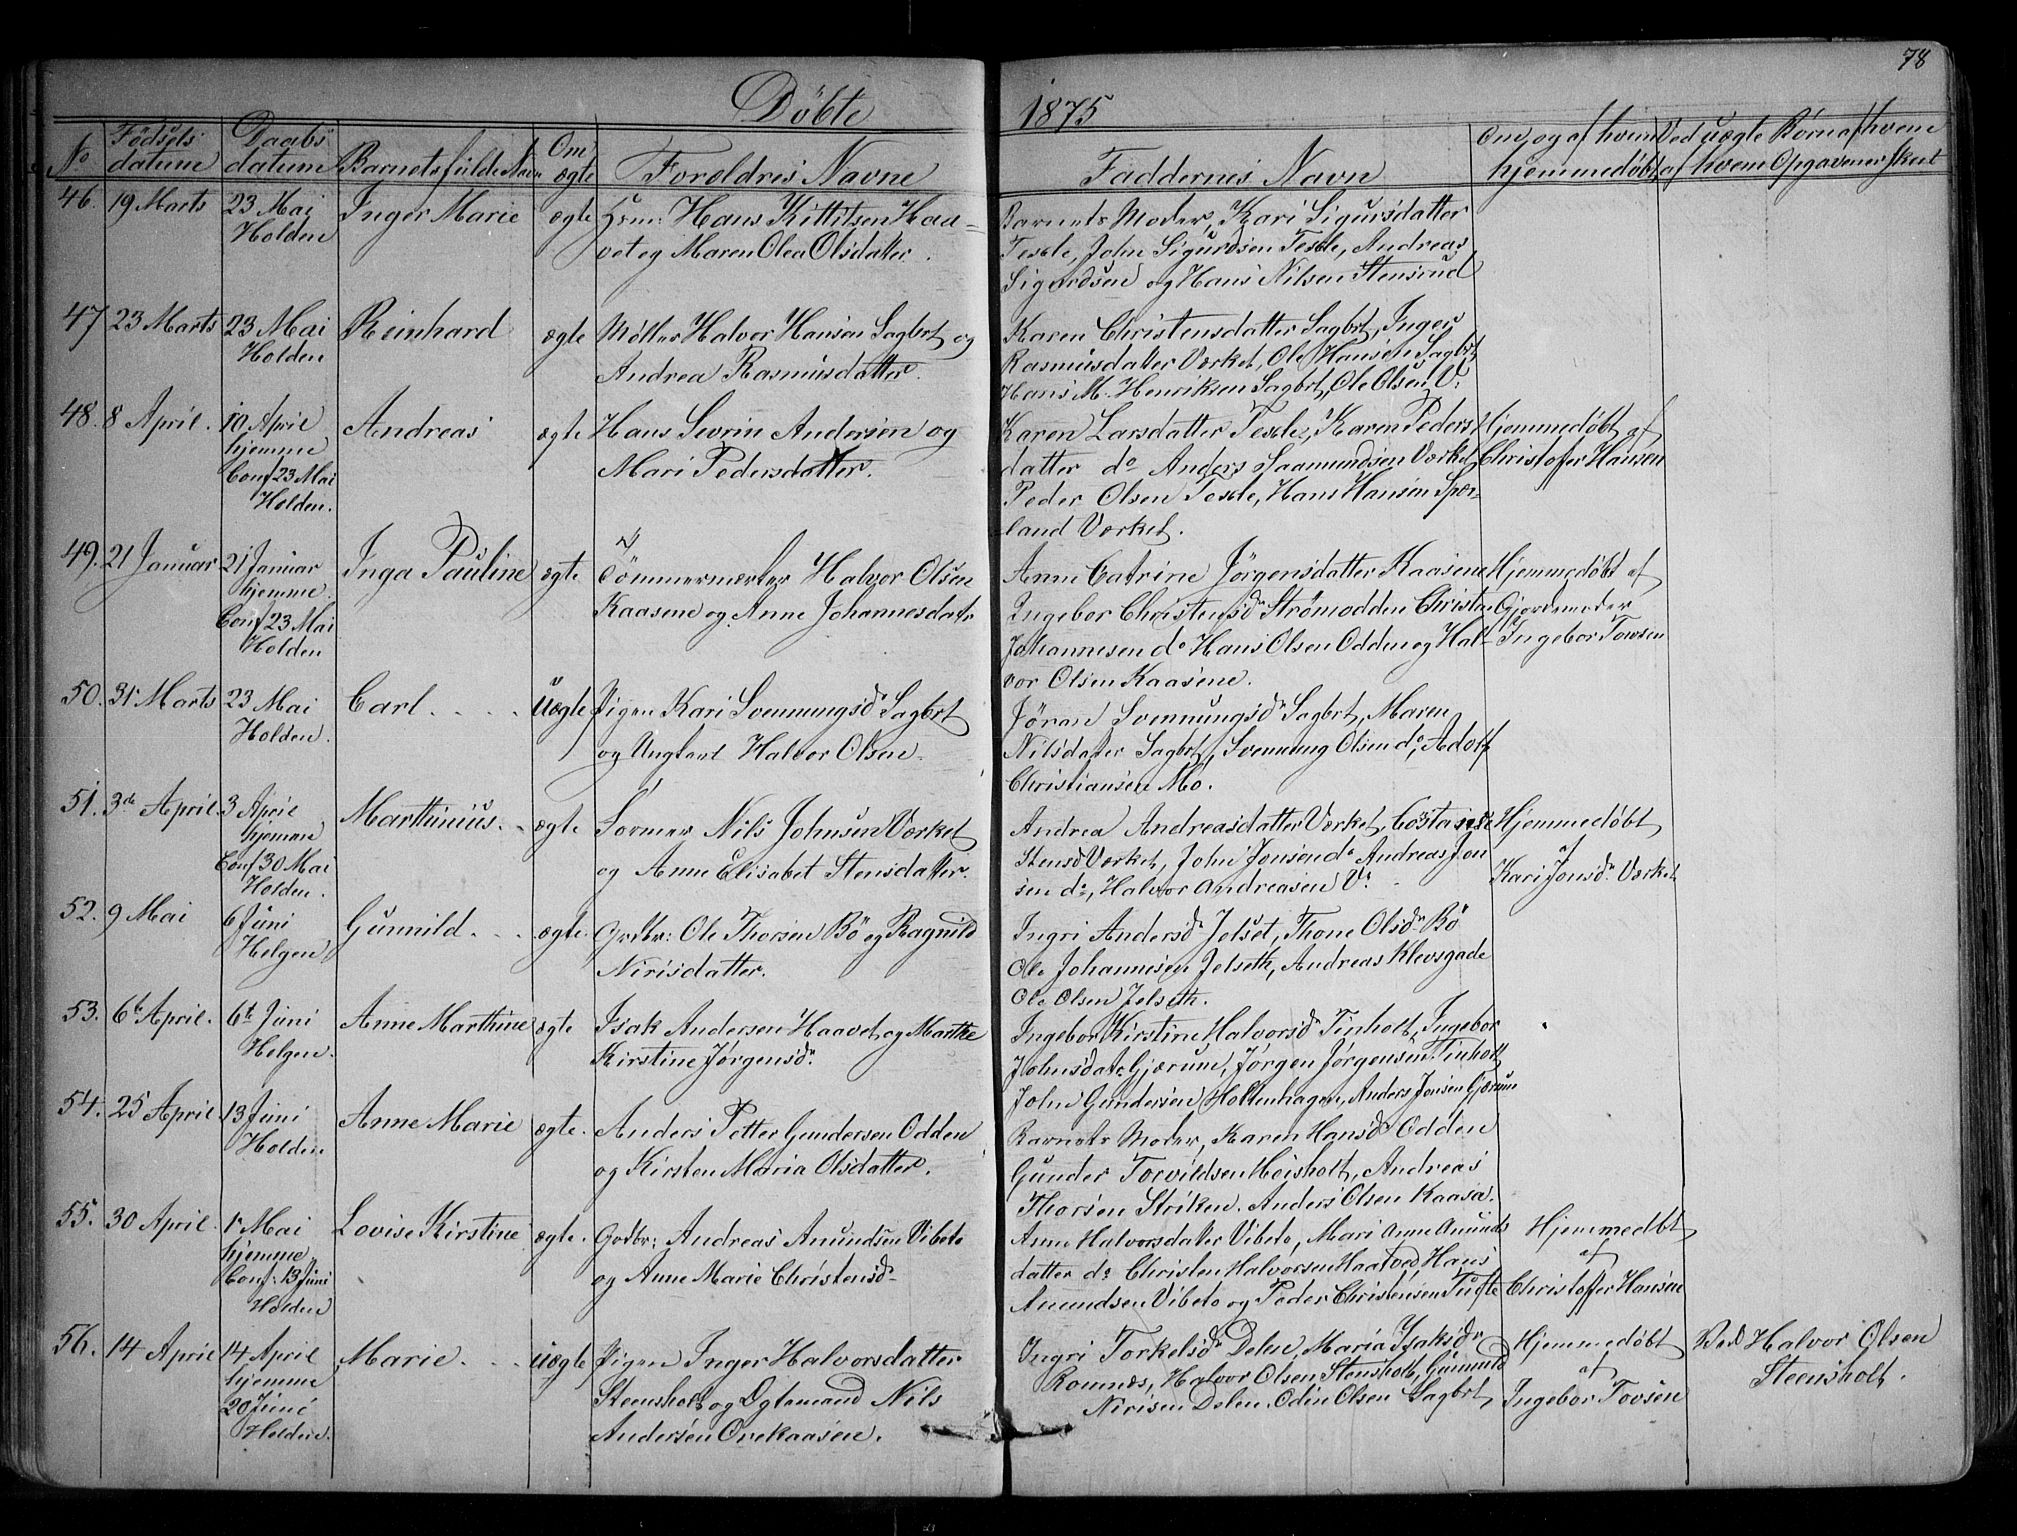 78
Döbte 1875
No
Födsels datum
Daabs datum
Barnets fulde Navn
Om ægte
Forældres Navne
Faddernes Navn
Om og af hvem hjemmedöbt
Ved uægte Börn af hvem af hvem Opgavener skeet
46. 19 Marts
23 Mai
Holden
Inger Marie
ægte
Hsm: Hans Kittilsen Haa-
vet og Maren Olea Olsdatter.
Barnets Moder, Kari Sigursdatter
Teşle, John Sigurdsen Tesle, Andreas
Sigurdsen og Hans Nilsen Stensrud
47 23 Marts
23 Mai
Holden
Reinhard
ægte
Möller Halvor Hansen Sagbrt og
Andrea Rasmusdatter.
Karen Christensdatter Sagbrt, Inger
Rasmusdatter Værket, Ole Hansen Sagbrt
Hans M. Henriksen Sagbrt, Ole Olsen V:
48. 8 April.
10 April
hjemme
Conf 23 Mai
Holden.
Andreas
ægte
Hans Sevrin Andersen og
Mari Pedersdatter.
Karen Larsdatter Tesle, Karen Peders
datter do Anders Saamundsen Værket
Peder Olsen Tesle, Hans Hansen Spær-
land Værket.
Hjemmedöbt af
Christoffer Hansen
49. 21 Januar
21 Januar
hjemme.
Conf 23 Mai
Holden
Inga Pauline
ægte
Tömmermester Halvor Olsen
Kaasene og Anne Johannesdatr
Anne Catrine Jörgensdatter Kaasene
Ingebor Christensdr Strömodden Christen
Johannesen do Hans Olsen Odden og Hal-
vor Olsen Kaasene.
Hjemmedöbt af
Gjordemoder
Ingebor Tovsen
50. 31 Marts
23 Mai
Holden.
Carl
uægte
Pigen Kari Svennungsdr Sagbrt
og Ungkarl Halvor Olsen.
Jöran Svennungsdr Sagbrt, Maren
Nilsdatter Sagbrt, Svennung Olsen do, Adolf
Christiansen Mo.
51. 3de April
3 April
hjemme
Conf 30 Mai
Holden.
Marthinius.
ægte
Former Nils Johnsen Værket
og Anne Elisabet Stensdatter.
Andrea Andreasdatter Værket,
Stensd Værket, John Jonsen do Andreas Jon
sen do, Halvor Andreasen V:
Hjemmedöbt
af
Kari Jonsdr Værket
52. 9 Mai
6 Juni
Helgen
Gunnild
ægte.
Grdbr: Ole Thorsen Bö og Ragnild
Nirisdatter.
Ingri Andersdr Jelset, Thone Olsdr Bö
Ole Johannesen Jelseth, Andreas Klevsgade
Ole Olsen Jelseth.
53. 6te April.
6te Juni
Helgen.
Anne Marthine
ægte
Isak Andersen Haavet og Marthe
Kirstine Jörgensdr
Ingebor Kirstine Halvorsdr Tinholt, Ingebor
Johnsdatr Gjærum, Jörgen Jörgensen Tinholt
John Gundersen Holtenhagen, Anders Jonsen Gjærum
54. 25 April.
13 Juni
Holden
Anne Marie
ægte.
Anders Petter Gundersen Odden
og Kirsten Maria Olsdatter.
Barnets Moder, Karen Hansdr Odden
Gunder Torvildsen Heisholt, Andreas
Thorsen Striken. Anders Olsen Kaasa.
55. 30 April.
1r Mai
hjemme
Conf: 13 Juni
Holden
Lovise Kirstine
ægte.
Grdbr: Andreas Amundsen Vibeto
og Anne Marie Christensdr
Anne Halvorsdatter Vibeto, Mari Anne Amunds
datter do Christen Halvorsen Haatved, Hans
Amundsen Vibeto og Peder Christensen Tufte
Hjemmedöbt
af
Christoffer Hansen
56. 14 April
14 April
hjemme
20 Juni
Holden.
Marie.
uægte
Pigen Inger Halvorsdatter
Steensholt og Ægtemand Nils
Andersen Ovekaasen.
Ingri Torkelsdr Delen, Maria Isaksdr
Romnæs, Halvor Olsen Stensholt, Gunmund
Nirisen Delen. Odin Olsen Sagbrt,
Hjemmedöbt
af
Ingebor Tovsen
Ved Halvor Olsen
Steensholt.